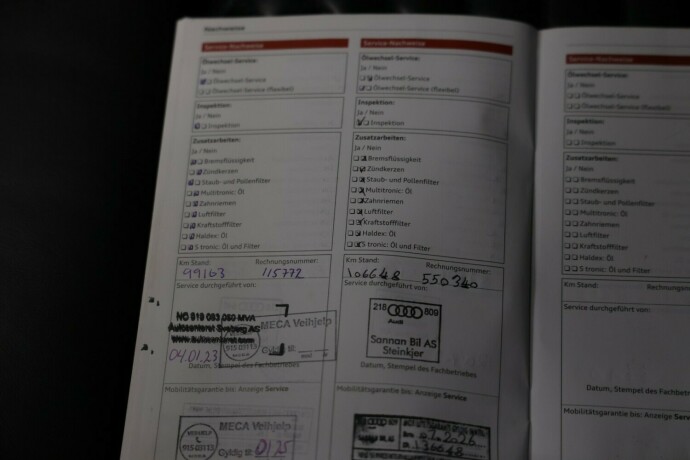 Nachweise
Service-Nachweise
Ölwechsel-Service:
Ja / Nein
Ölwechsel-Service
Ölwechsel-Service (flexibel)
Inspektion:
Ja / Nein
Inspektion
Zusatzarbeiten:
Ja / Nein
Bremsflüssigkeit
Zündkerzen
Staub- und Pollenfilter
Multitronic: Öl
Zahnriemen
Luftfilter
Kraftstofffilter
Haldex: Öl
S tronic: Öl und Filter
Km Stand: Rechnungsnummer:
99163 115772
Service durchgeführt von:
NO 919 083 060 MVA
Autosenteret Sveberg AS
www.autosenteret.com
MECA Veihjelp
915 03113
Gyldig til:
04.01.23
Datum, Stempel des Fachbetriebes
Mobilitätsgarantie bis: Anzeige Service
MECA Veihjelp
915 03113
Gyldig til: 01 25
Service-Nachweise
Ölwechsel-Service:
Ja / Nein
Ölwechsel-Service
Ölwechsel-Service (flexibel)
Inspektion:
Ja / Nein
Inspektion
Zusatzarbeiten:
Ja / Nein
Bremsflüssigkeit
Zündkerzen
Staub- und Pollenfilter
Multitronic: Öl
Zahnriemen
Luftfilter
Kraftstofffilter
Haldex: Öl
S tronic: Öl und Filter
Km Stand: Rechnungsnummer:
106648 550340
Service durchgeführt von:
218 809
Audi
Sannan Bil AS
Steinkjer
Datum, Stempel des Fachbetriebes
Mobilitätsgarantie bis: Anzeige Service
2026
136648
Service-Nachweise
Ölwechsel-Service:
Ja / Nein
Ölwechsel-Service
Ölwechsel-Service (flexibel)
Inspektion:
Ja / Nein
Inspektion
Zusatzarbeiten:
Ja / Nein
Bremsflüssigkeit
Zündkerzen
Staub- und Pollenfilter
Multitronic: Öl
Zahnriemen
Luftfilter
Kraftstofffilter
Haldex: Öl
S tronic: Öl und Filter
Km Stand:
Service durchgeführt von:
Datum, Stempel des Fachbetriebes
Mobilitätsgarantie bis: Anzeige